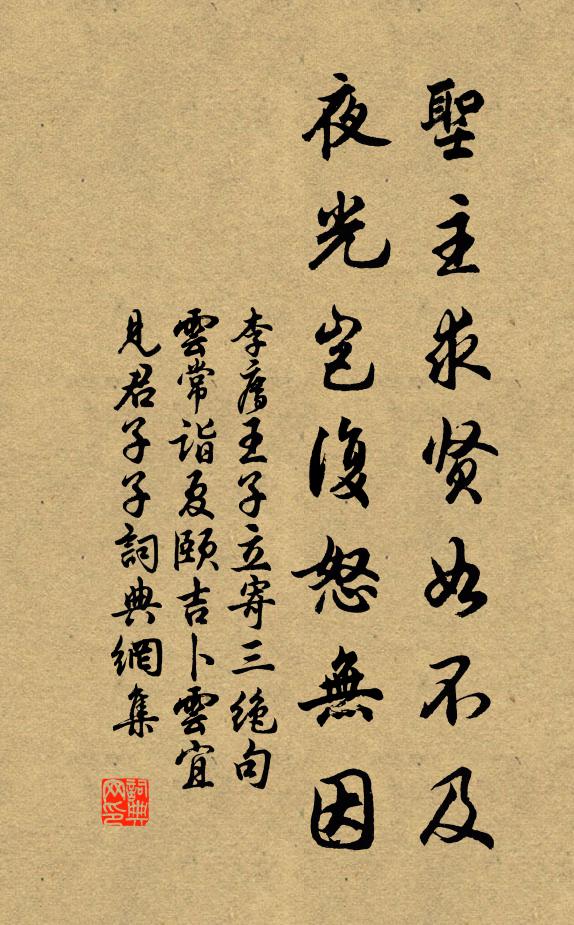 聖主求贤如不及
夜光岂復怒無因
李廌王子立寄三絶句
雲常詣夏頤吉卜雲宜
見君子子詞典網集
詞典
网印